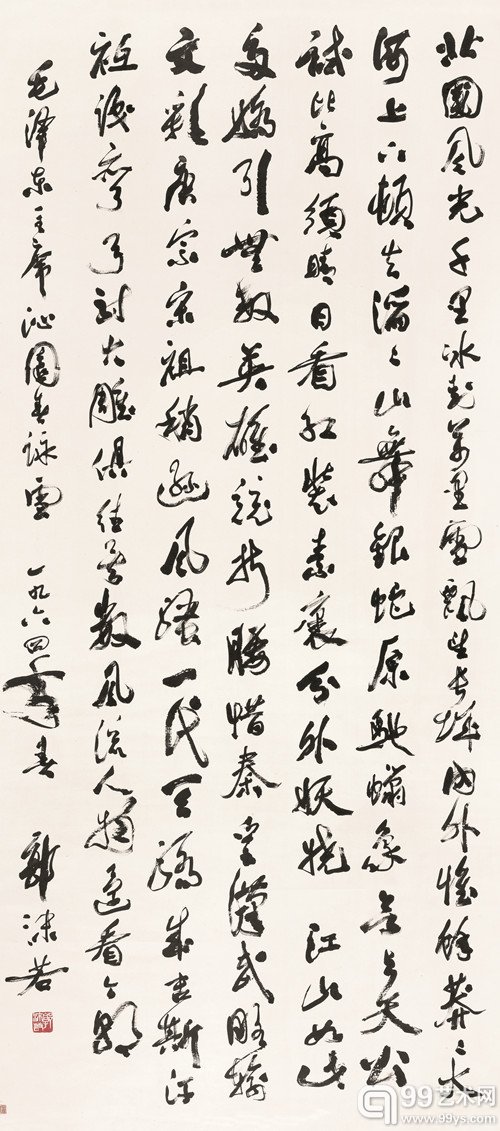 北國風光千里冰封萬里雪飄望長城內外惟餘莽々大
河上下頓失滔々山舞銀蛇原馳蠟象欲与天公
試比高須晴日看紅裝素裹分外妖嬈 江山如此
多嬌引無數英雄競折腰惜秦皇漢武略輸
文彩唐宗宋祖稍遜風騷一代天驕成吉斯汗
祗識彎弓射大雕俱往矣數風流人物還看今朝
毛泽东主席沁園春詠雪 一九六四年春 郭沫若
99艺术网
www.99ys.com